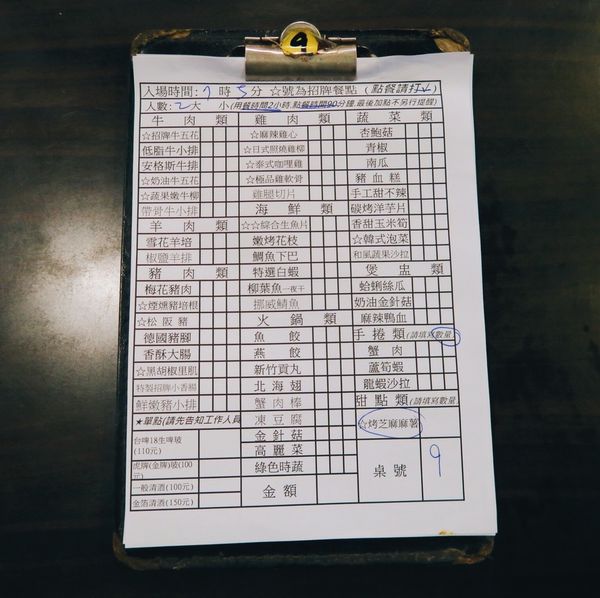 9
入場時間:7時5分 ☆號為招牌餐點 (點餐請打✓)
人數:2大 小(用餐時間2小時.點餐時間90分鐘.最後加點不另行提醒)
牛肉類 雞肉類 蔬菜類
☆招牌牛五花 ☆麻辣雞心 杏鮑菇
低脂牛小排 ☆日式照燒雞柳 青椒
安格斯牛排 ☆泰式咖哩雞 南瓜
☆奶油牛五花 ☆極品雞軟骨 豬血糕
☆蔬果嫩牛柳 雞腿切片 手工甜不辣
帶骨牛小排 海鮮類 碳烤洋芋片
羊肉類 ☆☆綜合生魚片 香甜玉米筍
雪花羊培 嫩烤花枝 ☆韓式泡菜
椒鹽羊排 鯛魚下巴 和風蔬果沙拉
豬肉類 特選白蝦 煲盅類
梅花豬肉 柳葉魚一夜干 蛤蜊絲瓜
☆煙燻豬培根 挪威鯖魚 奶油金針菇
☆松阪豬 火鍋類 麻辣鴨血
德國豬腳 魚餃 手捲類(請填寫數量)
香酥大腸 燕餃 蟹肉
☆黑胡椒里肌 新竹貢丸 蘆筍蝦
特製招牌小香腸 北海翅 龍蝦沙拉
鮮嫩豬小排 蟹肉棒 甜點類(請填寫數量)
★單點(請先告知工作人員 凍豆腐 ☆烤芝麻麻薯
台啤18生啤玻(110元) 金針菇
高麗菜 桌號 9
虎牌(金牌)玻(100元) 綠色時蔬
一般清酒(100元) 金額
金箔清酒(150元)